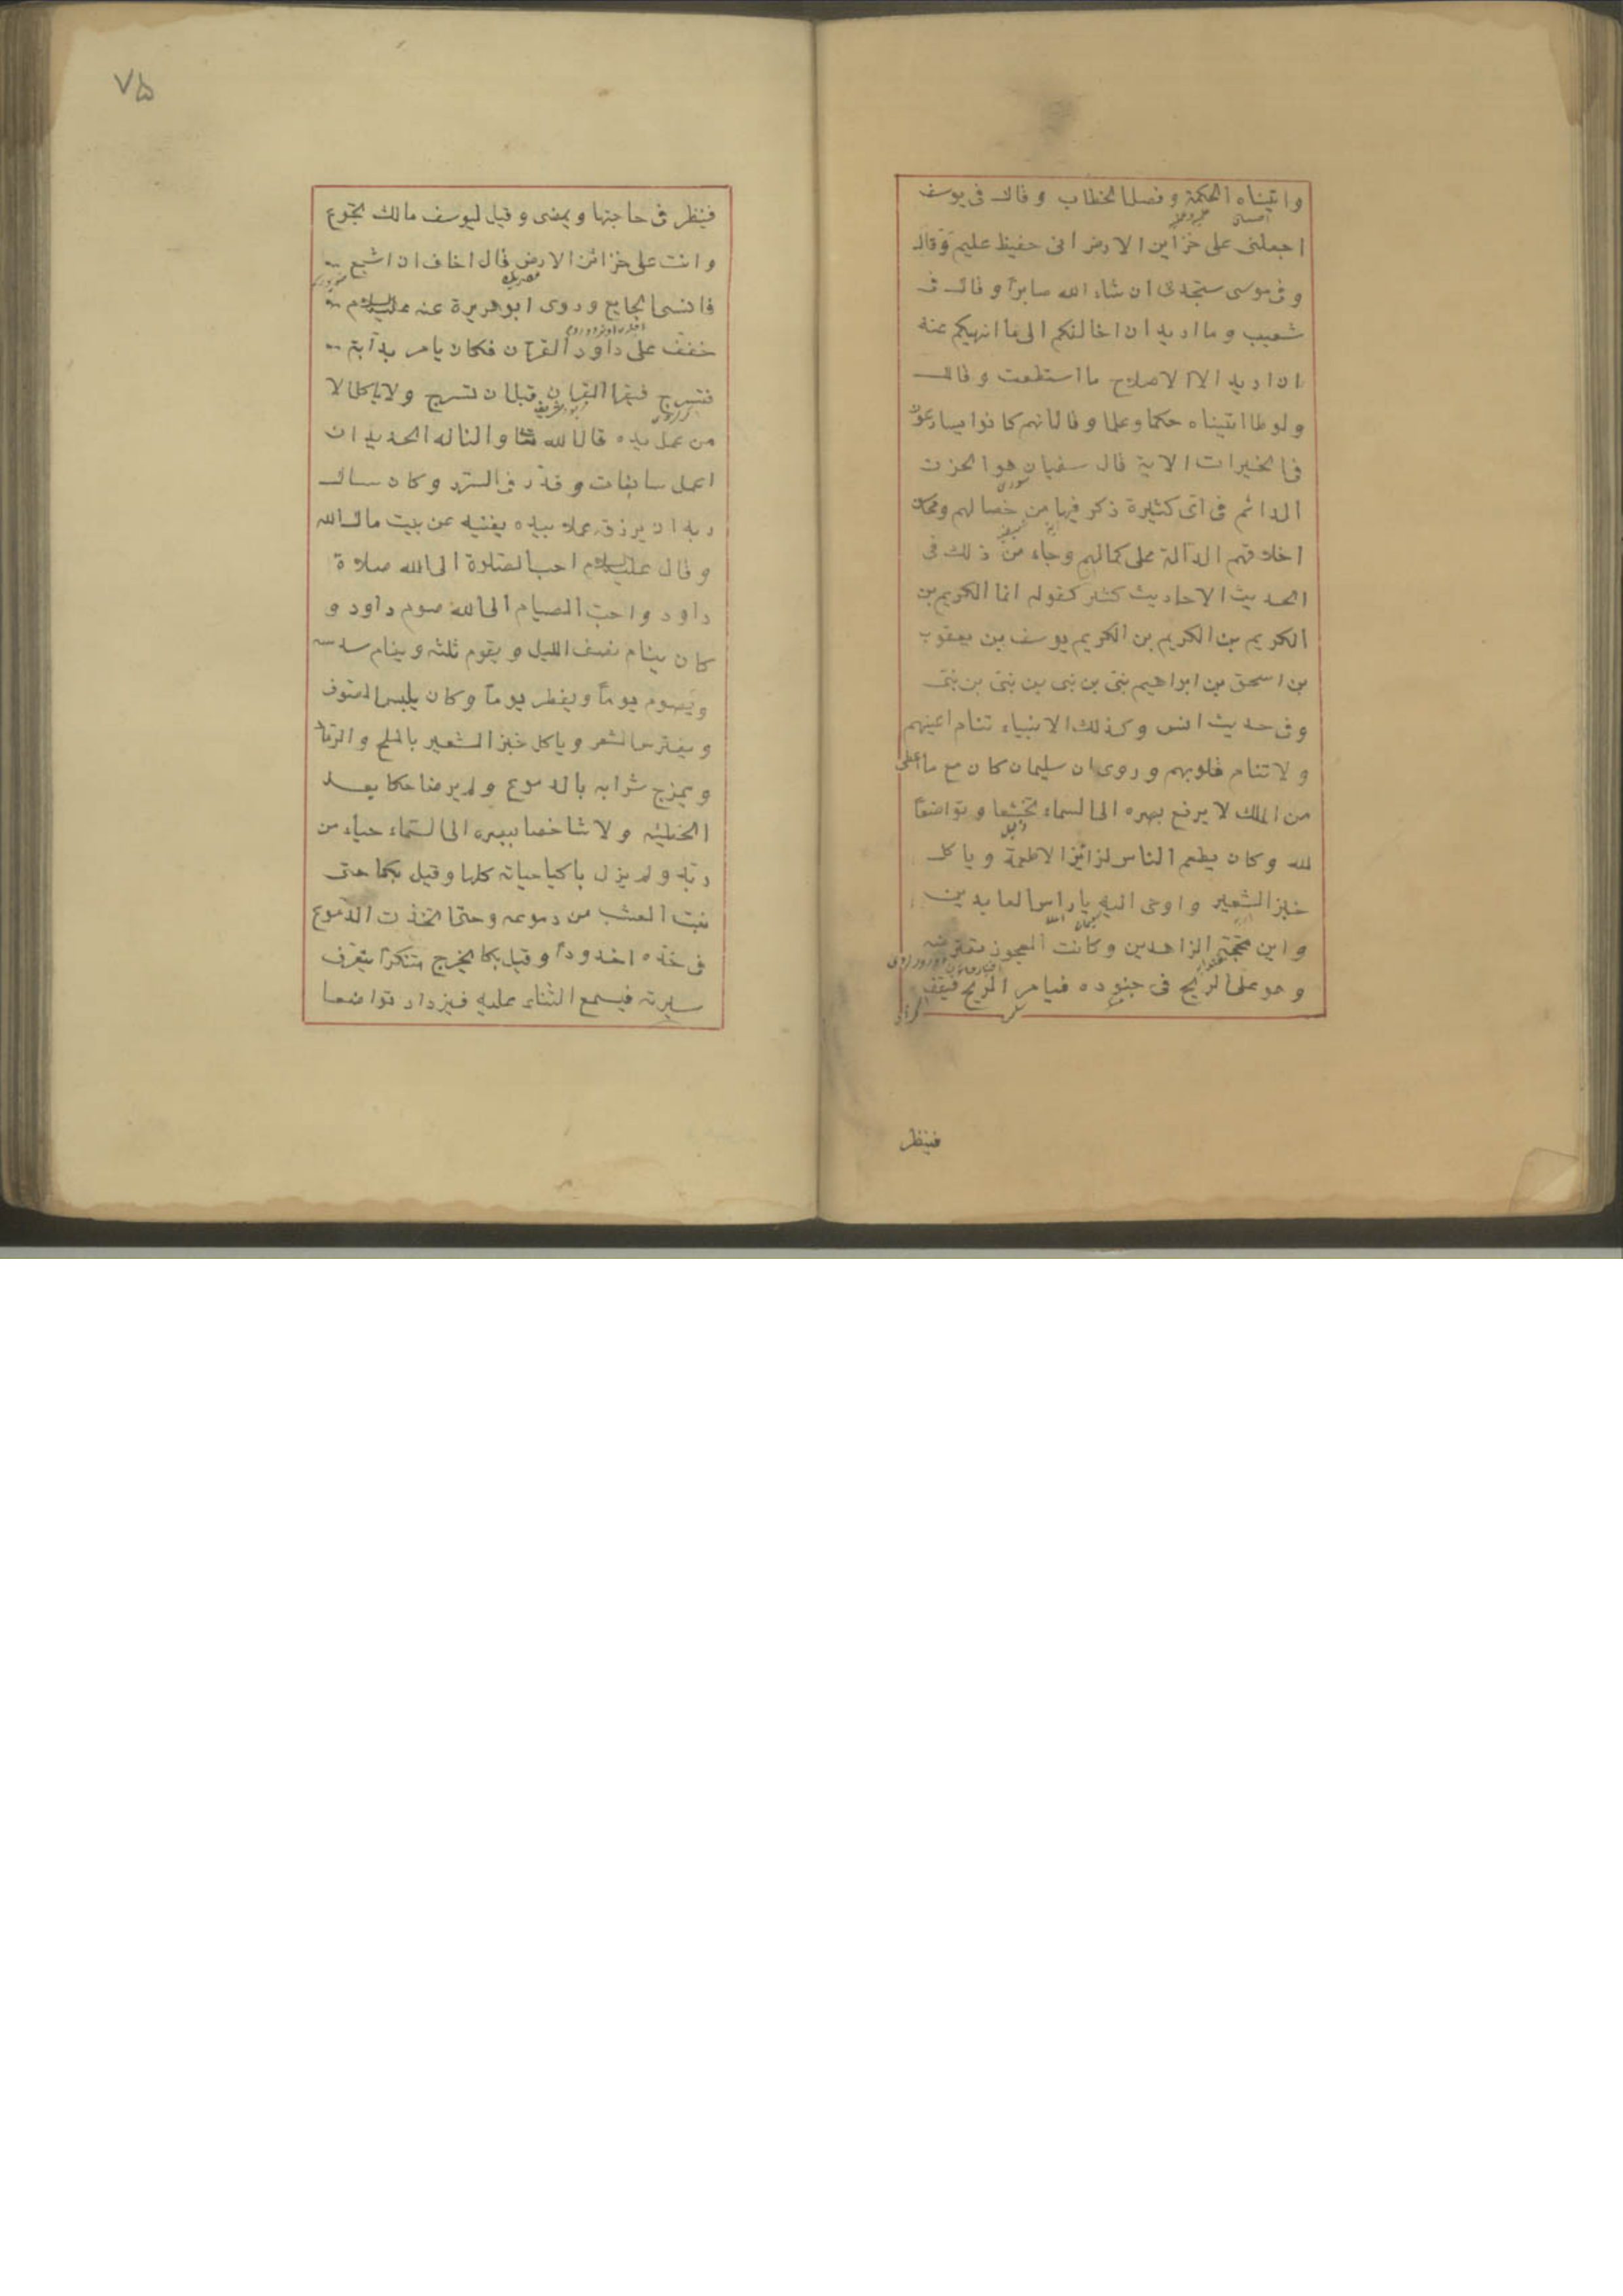 واتيناه الحكمة وفصل الخطاب وقال فى يوسف
اجعلنى على خزاين الارض انى حفيظ عليم وقال
وفى موسى ستجدنى ان شاء الله صابرا وقال فى
شعيب وما اريد ان اخالفكم الى ما انهيكم عنه
ان اريد الا الاصلاح ما استطعت وقال
ولوطا اتيناه حكما وعلما وقال انهم كانوا يسارعون
فى الخيرات الاية قال سفيان هو الحزن
الدائم فى آى كثيرة ذكر فيها من خصالهم ومحاسن
اخلاقهم الدالة على كمالهم وجاء من ذلك فى
الحديث الاحاديث كثير كقوله انما الكريم بن
الكريم بن الكريم بن الكريم يوسف بن يعقوب
بن اسحق بن ابراهيم نبى بن نبى بن نبى بن نبى
وفى حديث انس وكذلك الانبياء تنام اعينهم
ولا تنام قلوبهم وروى ان سليمان كان مع ما اعطى
من الملك لا يرفع بصره الى السماء تخشعا وتواضعا
لله وكان يطعم الناس لزائز الاطعمة وياكل
خبز الشعير واوحى اليه يا راس العابدين
وابن محجة الزاهدين وكانت العجوز تعترضه
وهو على الريح فى جنوده فيامر الريح فتقف
فينظر
٧٥
فينظر فى حاجتها ويمضى وقيل ليوسف مالك تجوع
وانت على خزائن الارض قال اخاف ان اشبع
فانسى الجايع وروى ابو هريرة عنه عليه السلام
خفف على داود القرآن فكان يامر بدابته
فتسرج فيقرا القران قبل ان تسرج ولا ياكل الا
من عمل يده قال الله تعا والنا له الحديد ان
اعمل سابغات وقدر فى السرد وكان سال
ربه ان يرزقه عملا بيده يغنيه عن بيت مال الله
وقال عليه السلام احب الصلوة الى الله صلاة
داود واحب الصيام الى الله صوم داود و
كان ينام نصف الليل ويقوم ثلثه وينام سدسه
ويصوم يوما ويفطر يوما وكان يلبس الصوف
ويفترس الشعر وياكل خبز الشعير بالملح والرماد
ويمزج شرابه بالدموع ولم ير ضاحكا بعد
الخطيئه ولا شاخصا ببصره الى السماء حياء من
ربه ولم يزل باكيا حياته كلها وقيل بكا حتى
نبت العشب من دموعه وحتى اتخذت الدموع
فى خده اخدودا وقيل كان يخرج متنكرا يتعرف
سيرته فيسمع الثناء عليه فيزداد تواضعا